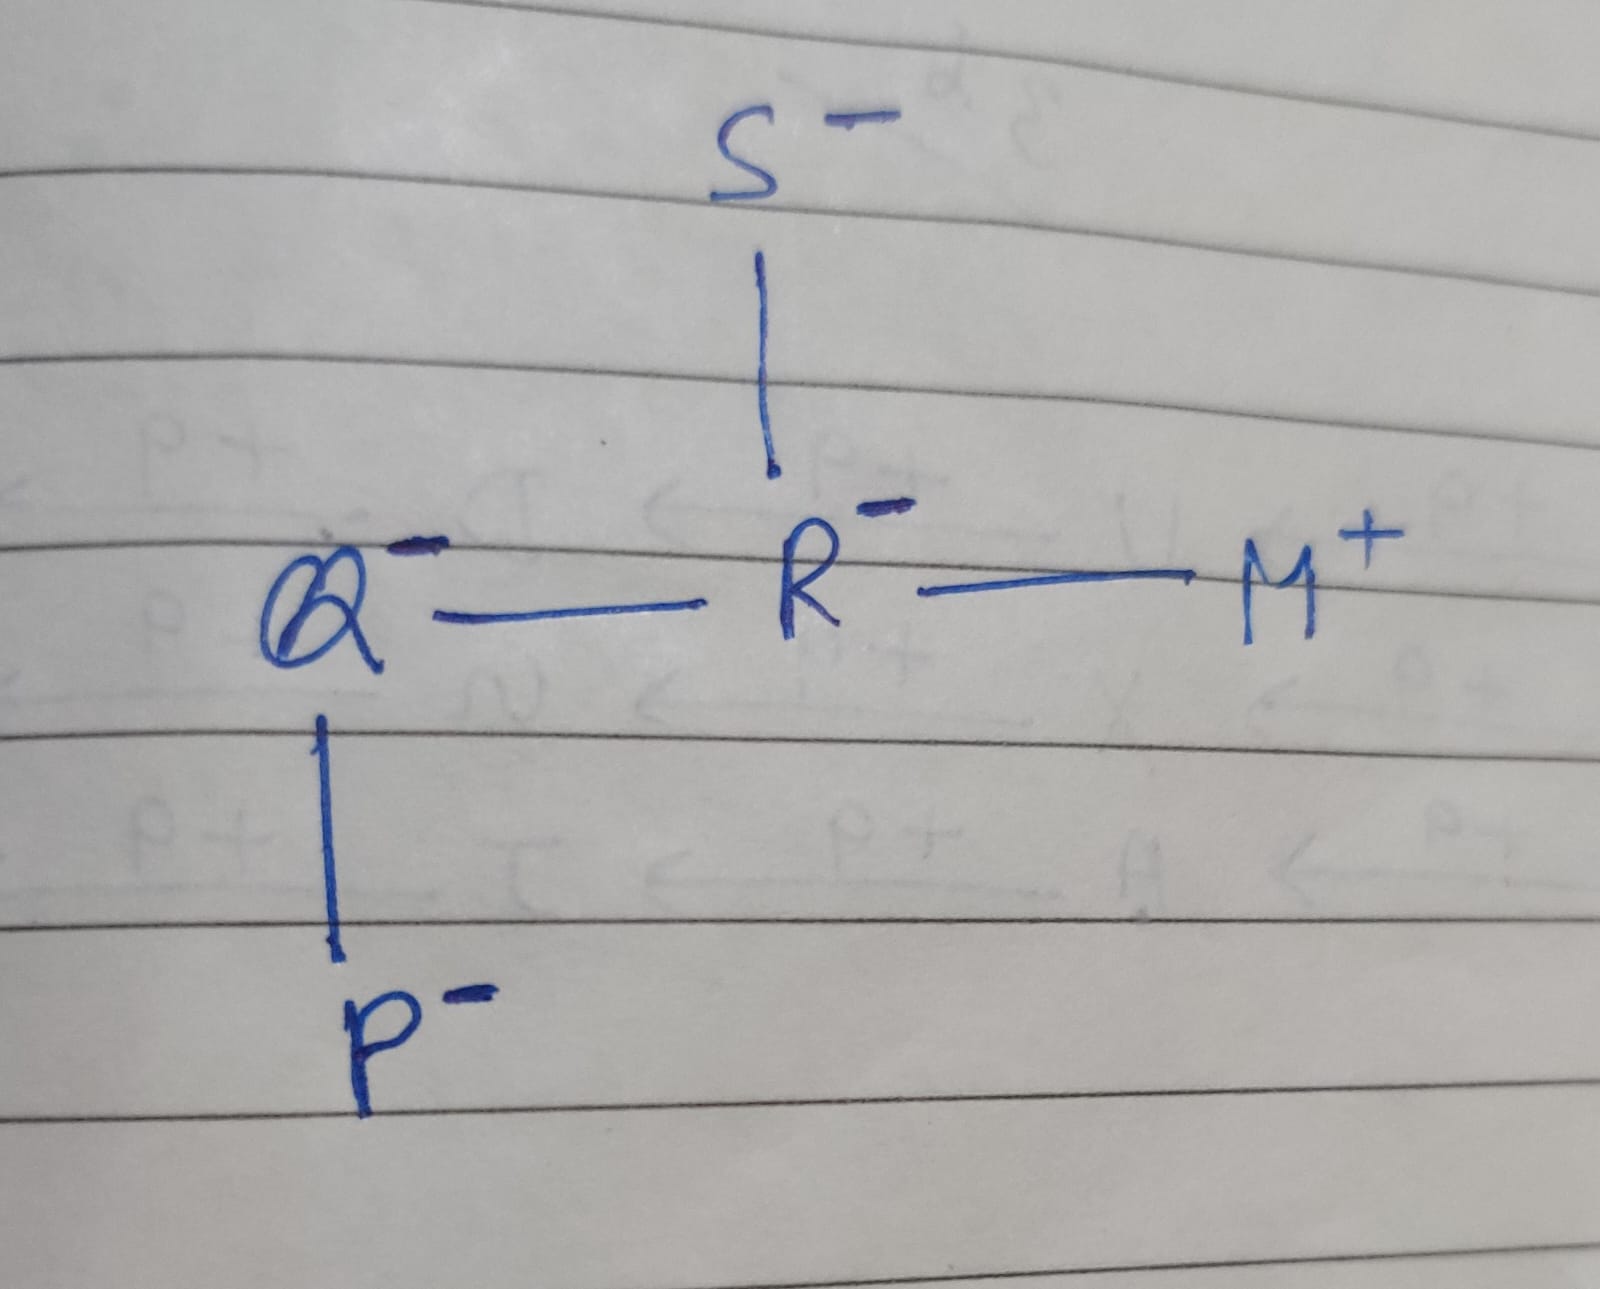 S⁻
Q⁻ — R⁻ — M⁺
P⁻